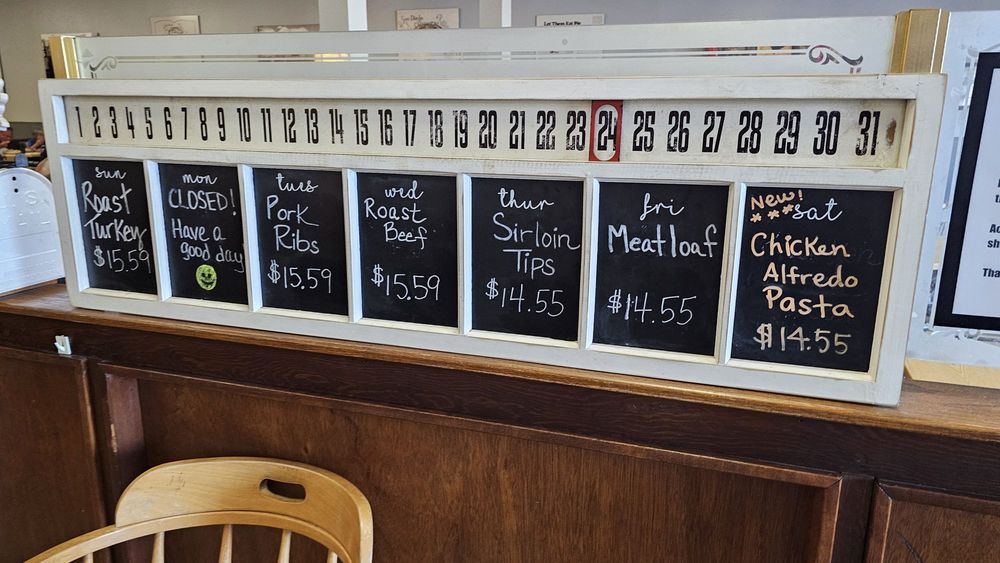 Let Them Eat Me
1 2 3 4 5 6 7 8 9 10 11 12 13 14 15 16 17 18 19 20 21 22 23 24 25 26 27 28 29 30 31
sun
Roast
Turkey
$15.59
mon
CLOSED!
Have a
good day
tues
Pork
Ribs
$15.59
wed
Roast
Beef
$15.59
thur
Sirloin
Tips
$14.55
fri
Meatloaf
$14.55
New!
***sat
Chicken
Alfredo
Pasta
$14.55